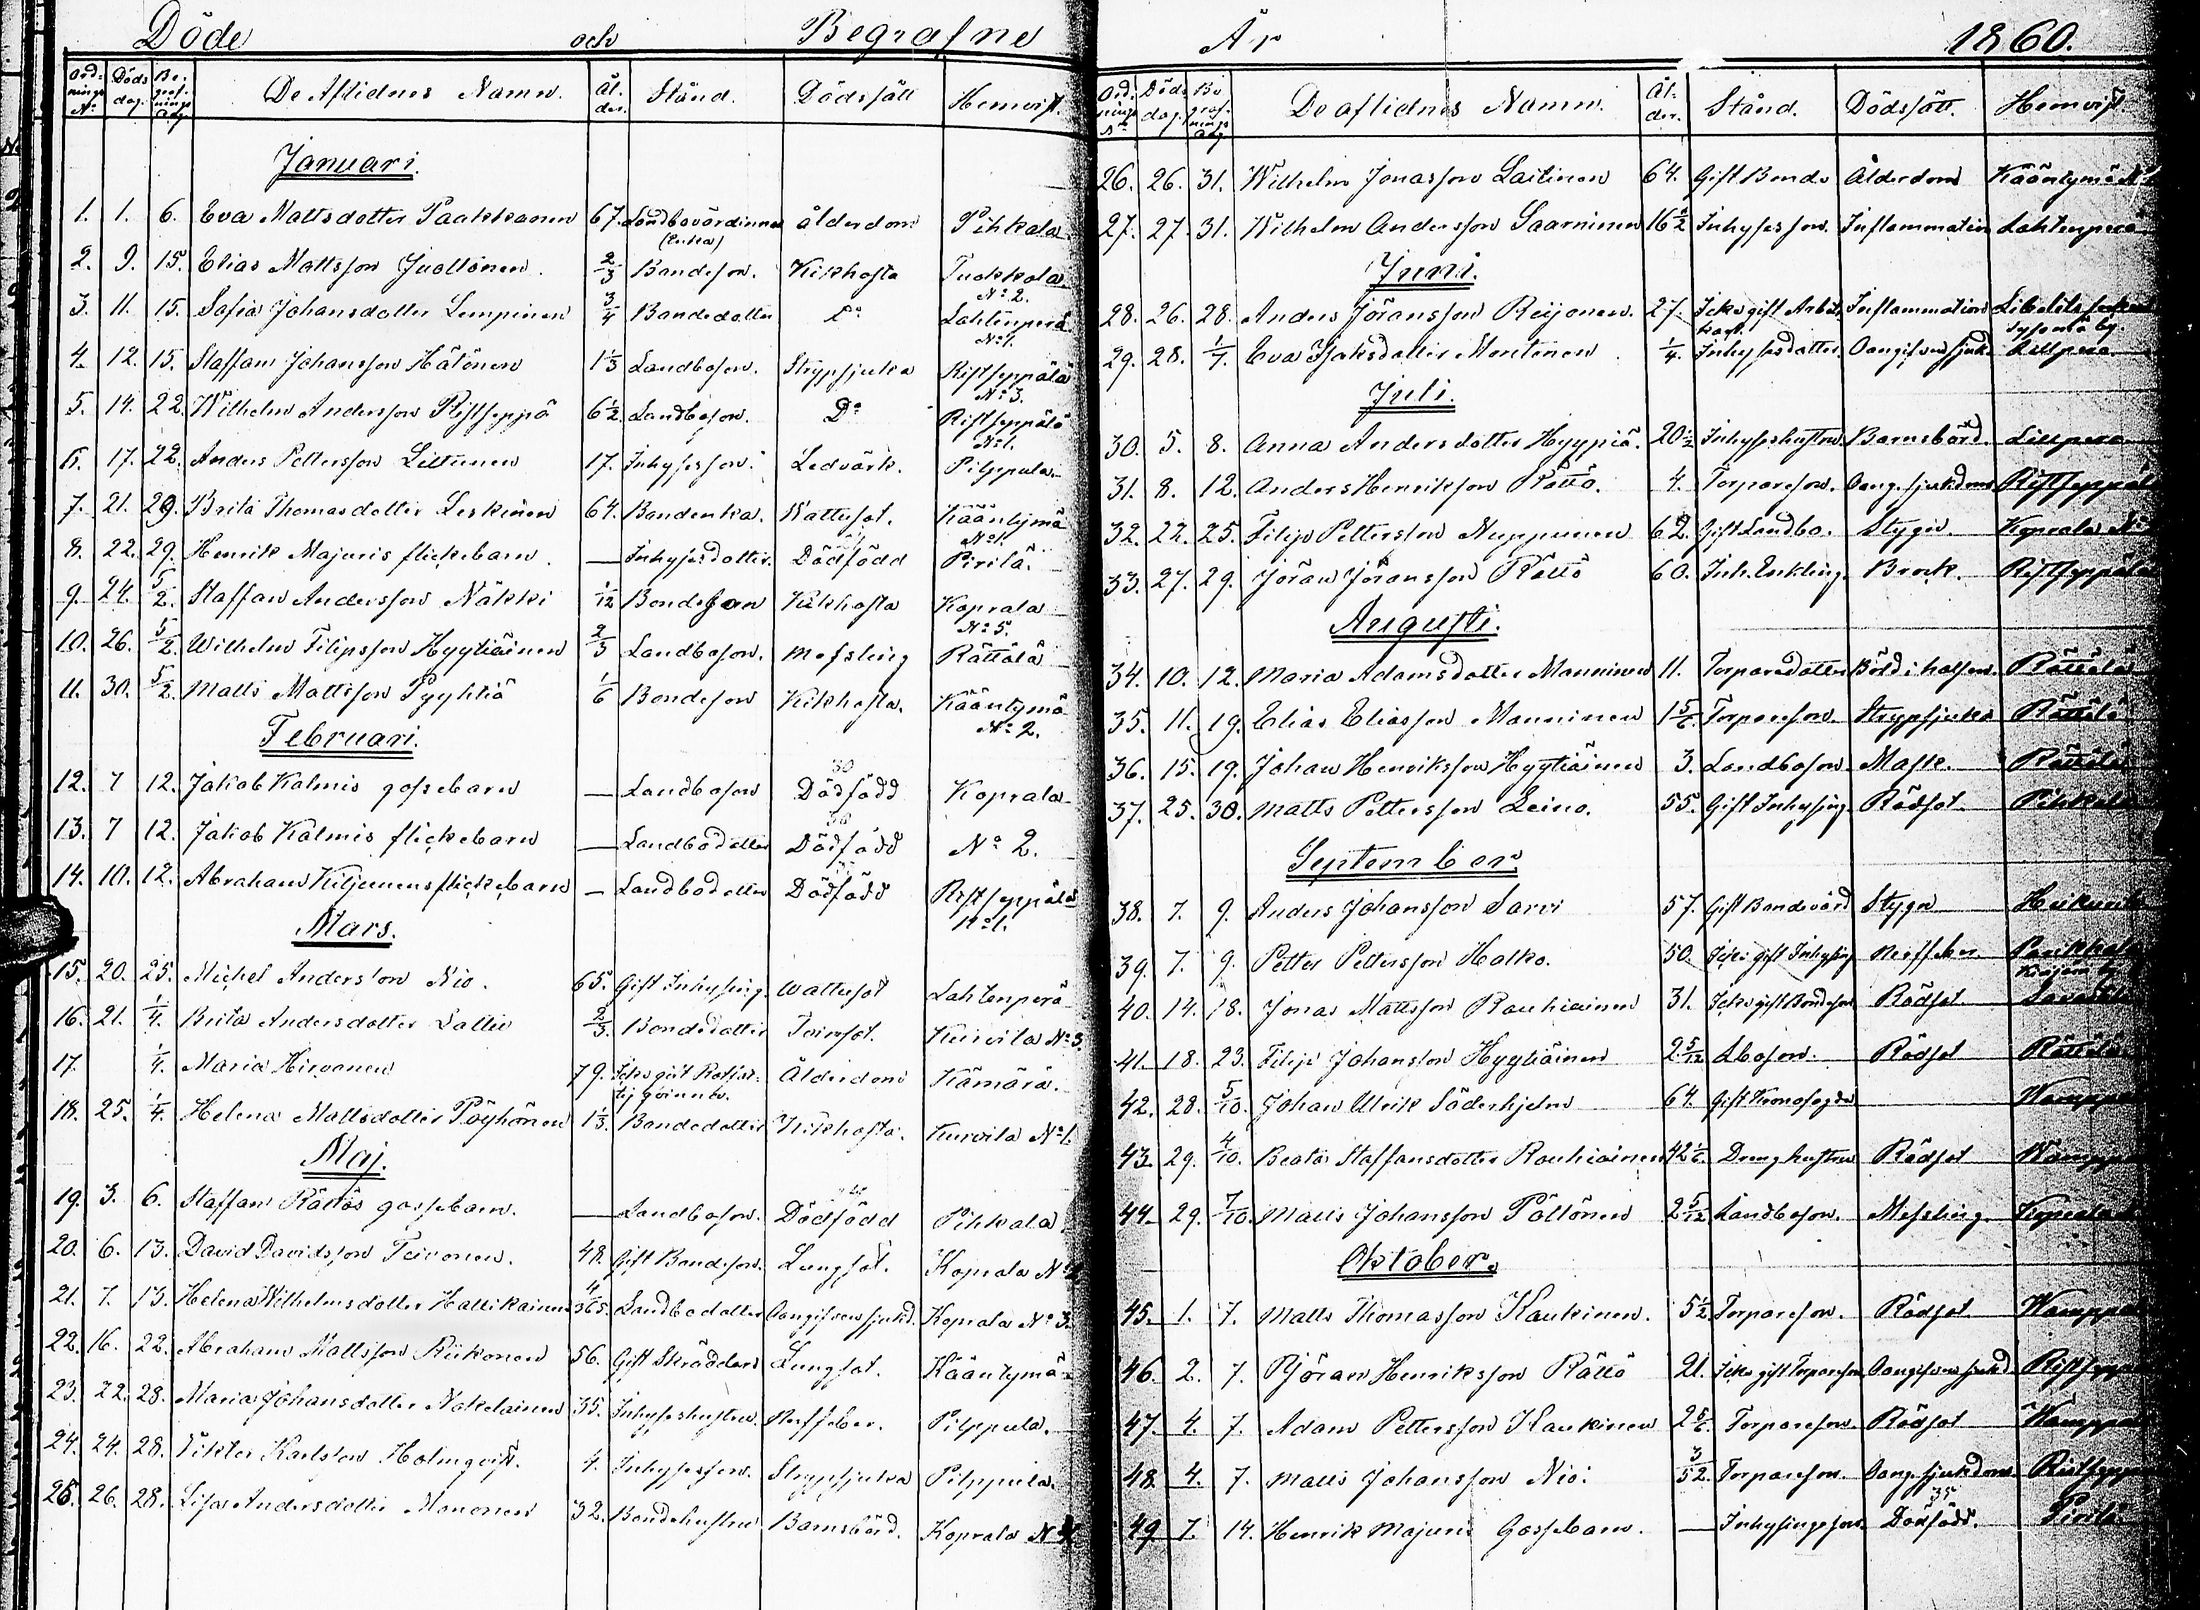 Döde och Begrafne
Ordnings No Döds dag. Begrafnings dag De Aflidnes Namn. Ålder. Stånd. Dödssätt Hemvist.
Januari.
1. 1. 6. Eva Mattsdotter Paakkanen 67. Landbovärdinna (Enka) ålderdom Pihkala
2. 9. 15. Elias Mattsson Juottonen. 2/3 Bondeson. Kikhosta Tuokkola No 2.
3. 11. 15. Sofia Johansdotter Lempinen 3/4 Bondedotter Do Lahtenperä No 1.
4. 12. 15. Staffan Johansson Hätönen 1 1/3 Landboson. Strypsjuka Ristseppälä No 3.
5. 14. 22. Wilhelm Andersson Ristseppä 6 1/2 Landboson. Do Ristseppälä No 1.
6. 17. 22. Anders Pettersson Littunen 17. Inhysesson. Ledvärk. Pilppula.
7. 21. 29. Brita Thomasdotter Leskinen 64. Bondenka. Wattusot. Kääntymä No 1.
8. 22. 29. Henrik Majuris flickebarn. — Inhysesdotter. Dödfödd Pirilä.
9. 24. 5/2. Staffan Andersson Näkki 1/12 Bondeson Kikhosta Koprala No 5.
10. 26. 5/2. Wilhelm Filipsson Hyytiäinen 2/3 Landboson. Messling Rättölä
11. 30. 5/2. Matts Mattsson Pyyhtiä 1/6 Bondeson Kikhosta. Kääntymä No 2.
Februari.
12. 7 12. Jakob Kalmis gossebarn — Landboson 30 Dödfödd Koprala
13. 7 12. Jakob Kalmis flickebarn — Landbodotter 30 Dödfödd No 2.
14. 10. 12. Abraham Kiljunens flickebarn — Landbodotter Dödfödd Ristseppälä No 1.
Mars.
15. 20. 25. Michel Andersson Nio. 65. Gift Inhysing. Wattusot Lahtenperä
16. 21. 1/4. Brita Andersdotter Lallu 2/3. Bondedotter Tvinsot. Kurvila No 3.
17. 1/4. Maria Hirvonen 79. Icke gift Ålderdom Kämärä.
18. 25. 1/4. Helena Mattsdotter Pöyhönen 1 1/3. Bondedotter Kikhosta. Kurvila No 1.
Maj.
19. 3. 6. Staffan Rättös gossebarn. — Landboson. Dödfödd Pihkala
20. 6. 13. David Davidsson Toivonen. 48. Gift Bondeson. Lungsot. Koprala No
21. 7. 13. Helena Wilhelmsdotter Hallikainen 4/365. Landbodotter Oangifven sjukd. Koprala No 3.
22. 16. 22. Abraham Mattsson Riikonen 56. Gift Skräddare Lungsot. Kääntymä
23. 22. 28. Maria Johansdotter Nokelainen 35. Inhyseshustru. Nerffeber. Pilppula.
24. 24. 28. Viktor Karlsson Holmqvist. 4. Inhysesson. Strypsjuka Pilppula.
25. 26. 28. Lisa Andersdotter Mononen 32. Bondehustru Barnsbörd. Koprala No
År 1860.
Ordnings No Döds dag. Begrafnings dag De aflidnes Namn. Ålder. Stånd. Dödssätt. Hemvist.
26. 26. 31. Wilhelm Jonasson Laitinen 64. Gift Bonde Ålderdom Kääntymä No
27. 27. 31. Wilhelm Andersson Saarninen 16 1/2 Inhysesson. Inflammation Lahtenperä
Juni.
28. 26. 28. Anders Jöransson Reijonen. 27. Icke gift Arbets karl. Inflammation Libelits socken
29. 28. 1/7. Eva Isaksdotter Montonen. 1/4. Inhysesdotter Oangifven sjukd. Lillpero
Juli.
30. 5. 8. Anna Andersdotter Hyypiä. 20 1/2 Inhyseshustru Barnsbörd Lillpero
31. 8. 12. Anders Henriksson Rättö. 4. Torpareson. Oang. sjukdom Ristseppälä
32. 22. 25. Filip Pettersson Nuppunen 62. Gift Landbo. Stygn. Koprala No
33. 27. 29. Jöran Jöransson Rättö 60. Inh. Enkling. Brock. Ristseppälä
Augusti.
34. 10. 12. Maria Adamsdotter Manninen 11. Torparedotter Böld i halsen. Rättölä
35. 11. 19. Elias Eliasson Manninen 1 5/6. Torpareson. Strypsjuka Rättölä
36. 15. 19. Johan Henriksson Hyytiäinen 3. Landboson Mask. Rättölä
37. 25. 30. Matts Pettersson Leino. 55. Gift Inhysing. Rödsot Pihkala
September
38. 7. 9. Anders Johansson Sarvi 57. Gift Bondevärd Stygn
39. 7. 9. Petter Pettersson Halko. 50. Icke gift Inhysing Nerffeber. Parikkala
40. 14. 18. Jonas Mattsson Rauhiainen 31. Icke gift Bondeson Rödsot
41. 18. 23. Filip Johansson Hyytiäinen 2 5/12 Lboson. Rödsot Rättölä
42. 28. 5/10. Johan Ulrik Söderhjelm 64. Gift Kronofogde
43. 29. 4/10. Beata Staffansdotter Rauhiainen 42 1/6. Drenghustru Rödsot
44. 29. 7/10. Matts Johansson Pöllönen 2 5/12 Landboson. Messling. Koprala
Oktober.
45. 1. 7. Matts Thomasson Kaukinen. 5 1/2 Torpareson. Rödsot
46. 2. 7. Björan Henriksson Rättö 21. Icke gift Torpareson Oangifven sjukd
47. 4. 7. Adam Pettersson Kaukinen 2 5/6. Torpareson. Rödsot
48. 4. 7. Matts Johansson Nio. 3/52. Torpareson. Oang. sjukdom
49 7. 14. Henrik Majuris Gossebarn. — Inhysingeson 35 Dödfödd. Pirilä